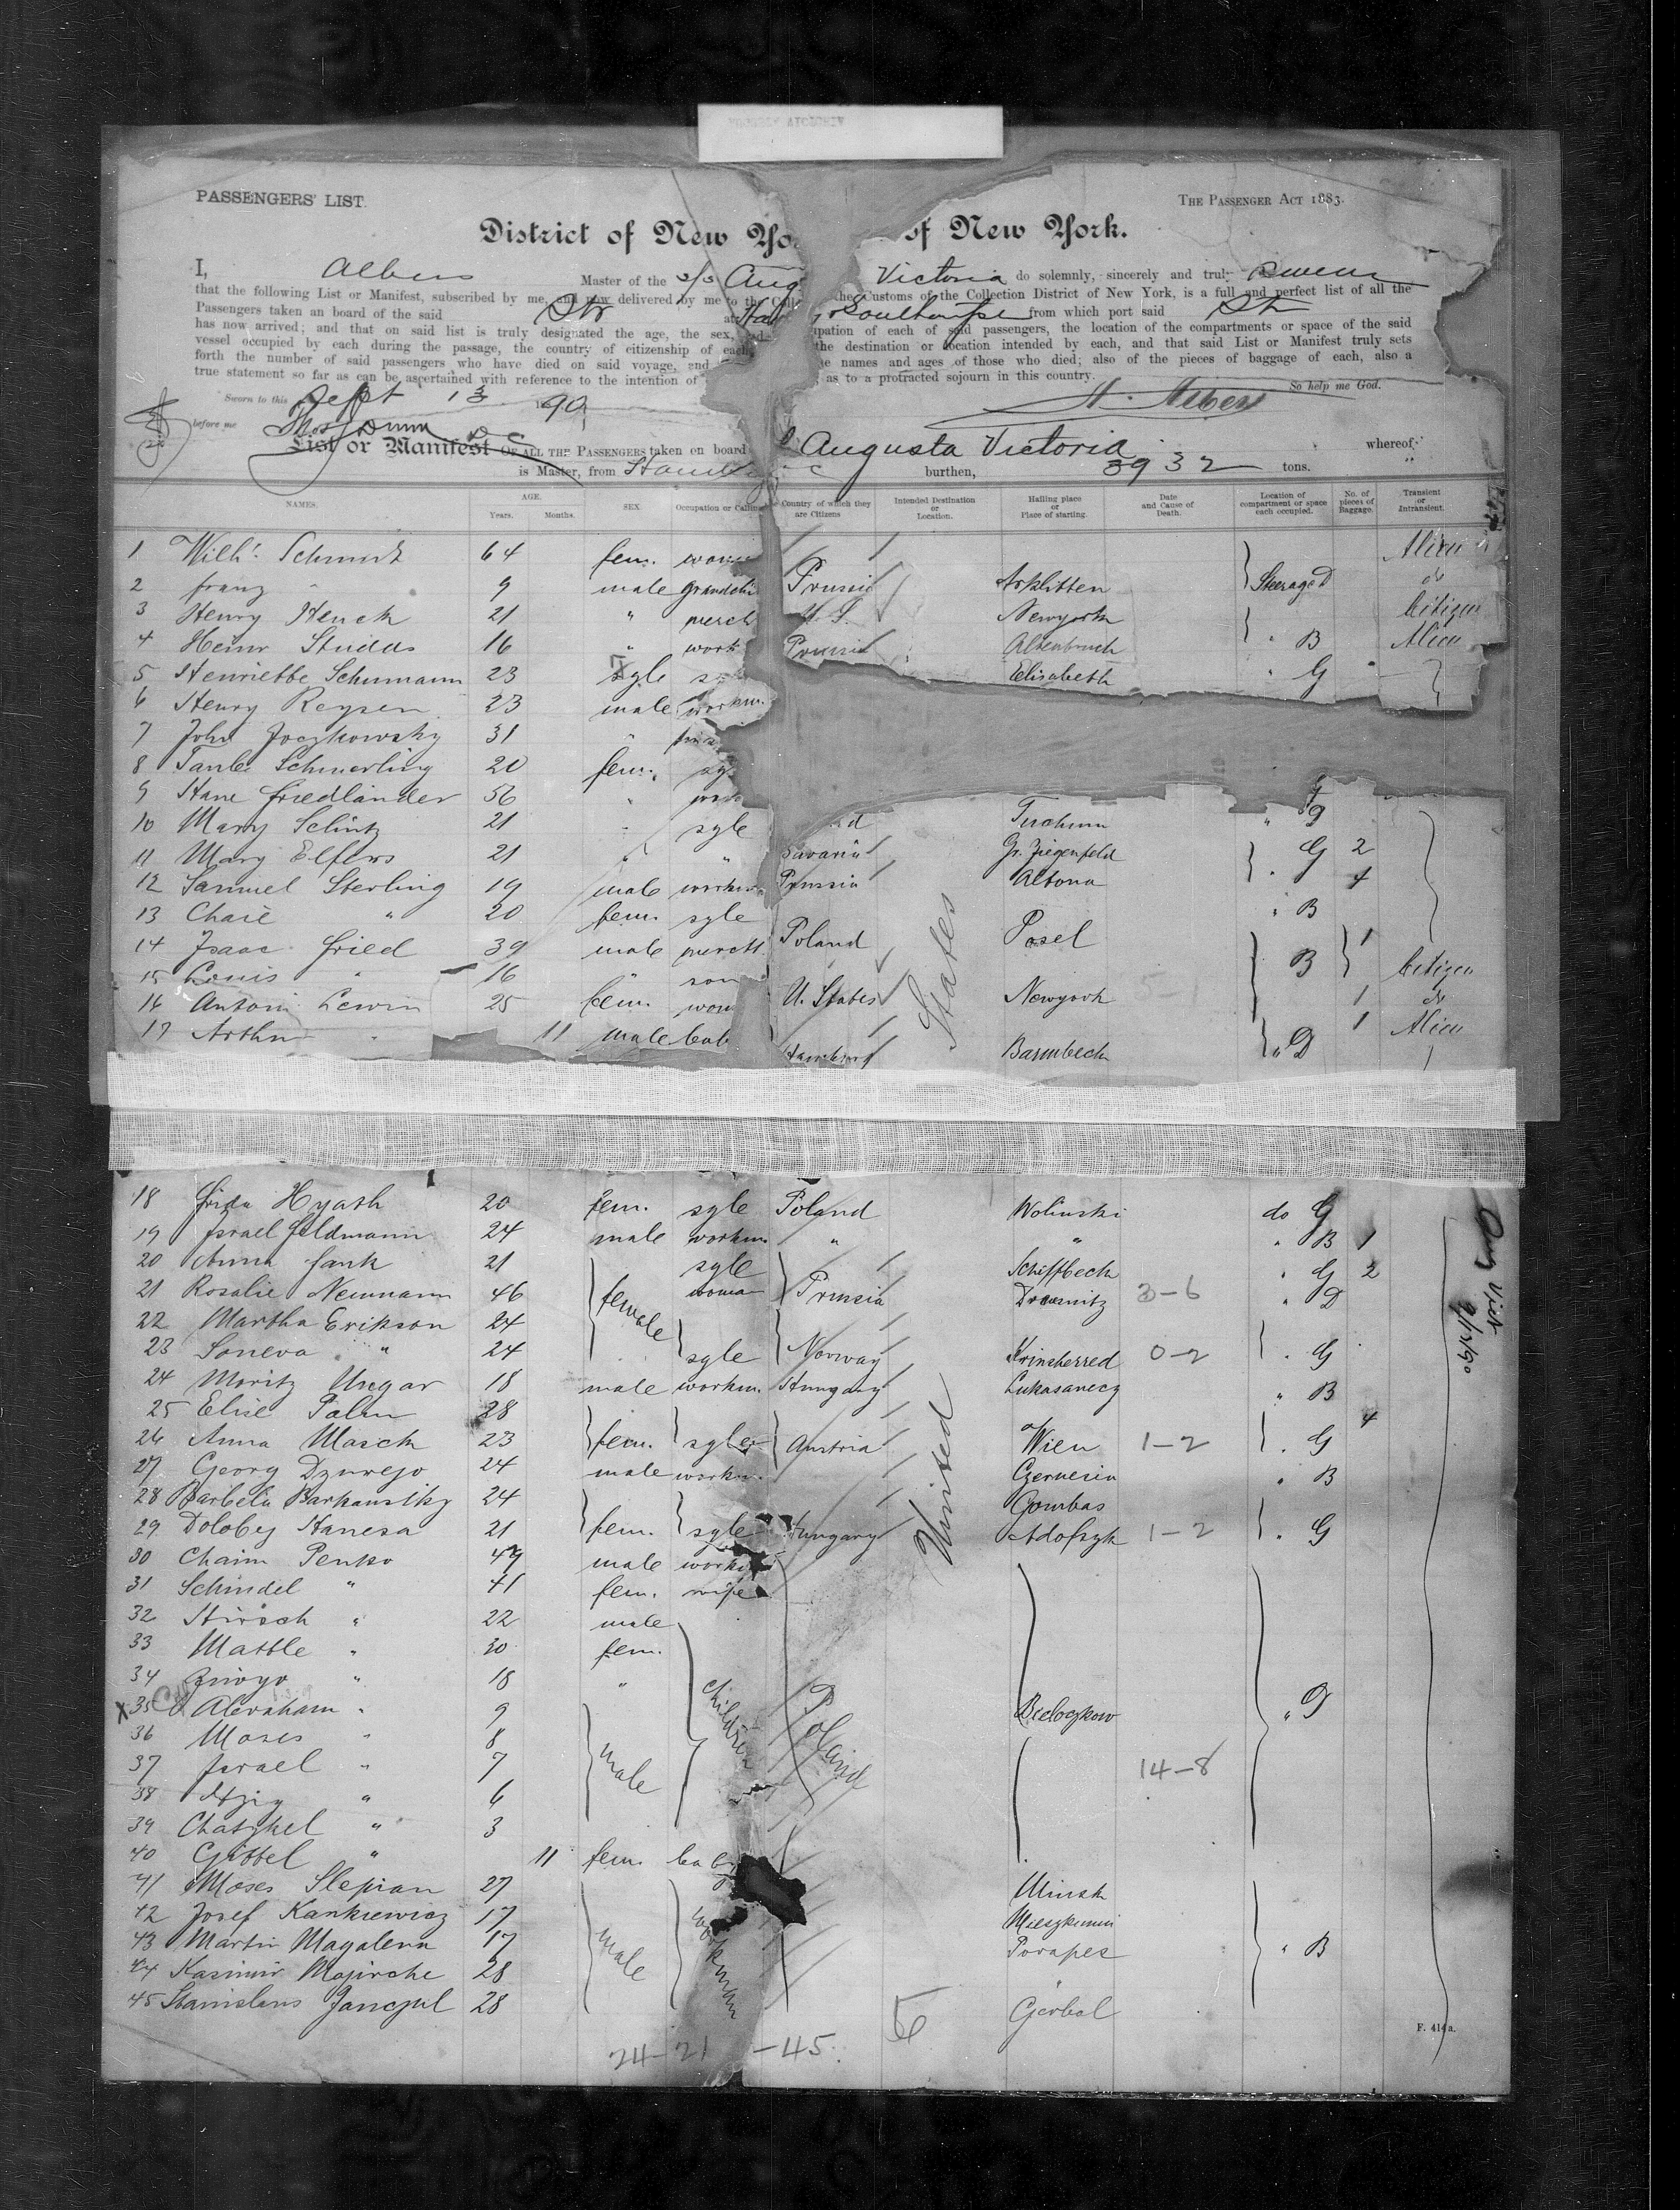 PASSENGERS' LIST.
THE PASSENGER ACT 1883.
District of New Yo of New York.
I, Albers Master of the S/S Aug Victoria do solemnly, sincerely and truly swear
that the following List or Manifest, subscribed by me, and now delivered by me to the Colle the Customs of the Collection District of New York, is a full and perfect list of all the
Passengers taken on board of the said Str at Ha Southampt from which port said Str
has now arrived; and that on said list is truly designated the age, the sex, and upation of each of said passengers, the location of the compartments or space of the said
vessel occupied by each during the passage, the country of citizenship of each the destination or location intended by each, and that said List or Manifest truly sets
forth the number of said passengers who have died on said voyage, and e names and ages of those who died; also of the pieces of baggage of each, also a
true statement so far as can be ascertained with reference to the intention of as to a protracted sojourn in this country.
So help me God.
Sworn to this Sept 13 1890
H. Albers
before me Thos J Dunn D C
List or Manifest OF ALL THE PASSENGERS taken on board Augusta Victoria whereof
is Master, from Hamb burthen, 3932 tons. "
NAMES. AGE. Years. Months. SEX. Occupation or Calling Country of which they are Citizens Intended Destination or Location. Hailing place or Place of starting. Date and Cause of Death. Location of compartment or space each occupied. No. of pieces of Baggage. Transient or Intransient.
1 Wilh. Schmidt 64 fem. wom Alien
2 franz " 9 male grandchi Prussia Steerage D do
3 Henry Henck 21 " merch U. S. Newyork Citizen
4 Heinr Studds 16 " work Prussia Altenbruch " B Alien
5 Henriette Schumann 23 sgle s Elisabeth " G
6 Henry Reysen 23 male workm.
7 John Joczkowsky 31 "
8 Taube Schmerling 20 fem. sg
9 Hane friedländer 56 "
10 Mary Schutz 21 " sgle d Tuchum "
11 Mary Elfers 21 " " Bavaria Gr. Ziegenfeld G 2
12 Samuel Sterling 19 male workm Prussia Altona " 4
13 Chaie " 20 fem. sgle " B
14 Isaac fried 39 male mercht. Poland Posel 1
15 Louis " 16 " son B Citizen
16 Antoni Lewin 25 fem. wom U. States Newyork 1 do
17 Arthur " 11 male bab Hamburg Barmbeck " D 1 Alien
States
18 frida Hyath 20 fem. sgle Poland Wolinski do G
19 Israel feldmann 24 male workm. " " " B 1
20 Anna fank 21 sgle Schiffbeck " G 2
21 Rosalie Neumann 46 female woman Prussia 3-6 " D
22 Martha Erikson 24
23 Soneva " 24 sgle Norway 0-2 " G
24 Moritz Ungar 18 male workm. Hungary Lukasanecz " B
25 Elise Palm 28 4
26 Anna Masch 23 fem. sgle Austria Wien 1-2 " G
27 Georg Dzurejo 24 male workm. " B
28 24 Gombas
29 Dolobey Hanesa 21 fem. sgle Hungary 1-2 " G
United
30 Chaim Penko 49 male work
31 Schindel " 41 fem. wife
32 Hirsch " 22 male
33 Mattle " 20 fem.
34 " 18 "
x 35 Abraham " 9 children Poland " D
36 Moses " 8
37 Israel " 7 male 14-8
38 Itzig " 6
39 Chatzkel " 3
40 Gittel " 11 fem. baby
41 Moses Slepian 27 Minsk
42 Josef Kankiewicz 17 workman
43 Martin Magalenn 17 male Porapez " B
44 Kasimir Majirche 28 "
45 Stanislaus Janczul 28 Gerbol
24-21-45
F. 414a.
Aug Vict
9/13/90